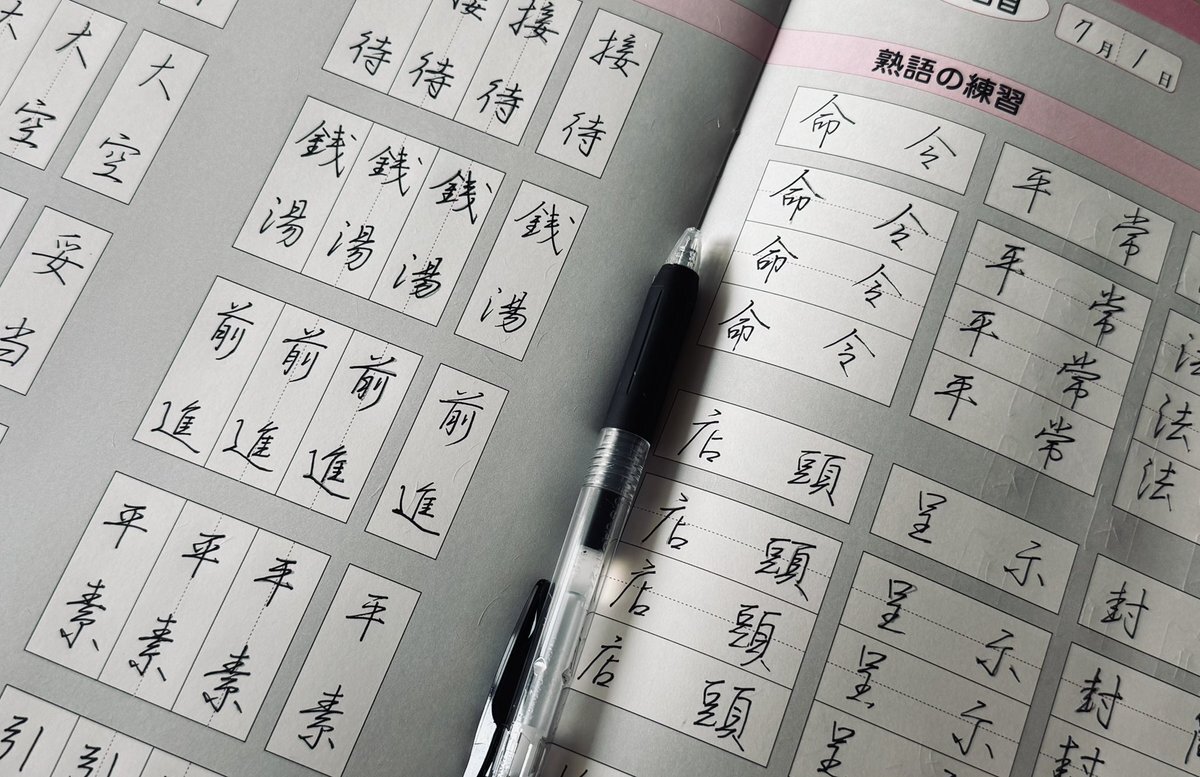 7月1日
熟語の練習
命令
命令
命令
命令
店頭
店頭
店頭
店頭
平常
平常
平常
平常
呈示
呈示
呈示
呈
法
法
法
封
封
封
接待
接待
接待
待
銭湯
銭湯
銭湯
銭湯
前進
前進
前進
前進
平素
平素
平素
平素
引
引
大空
大空
妥当